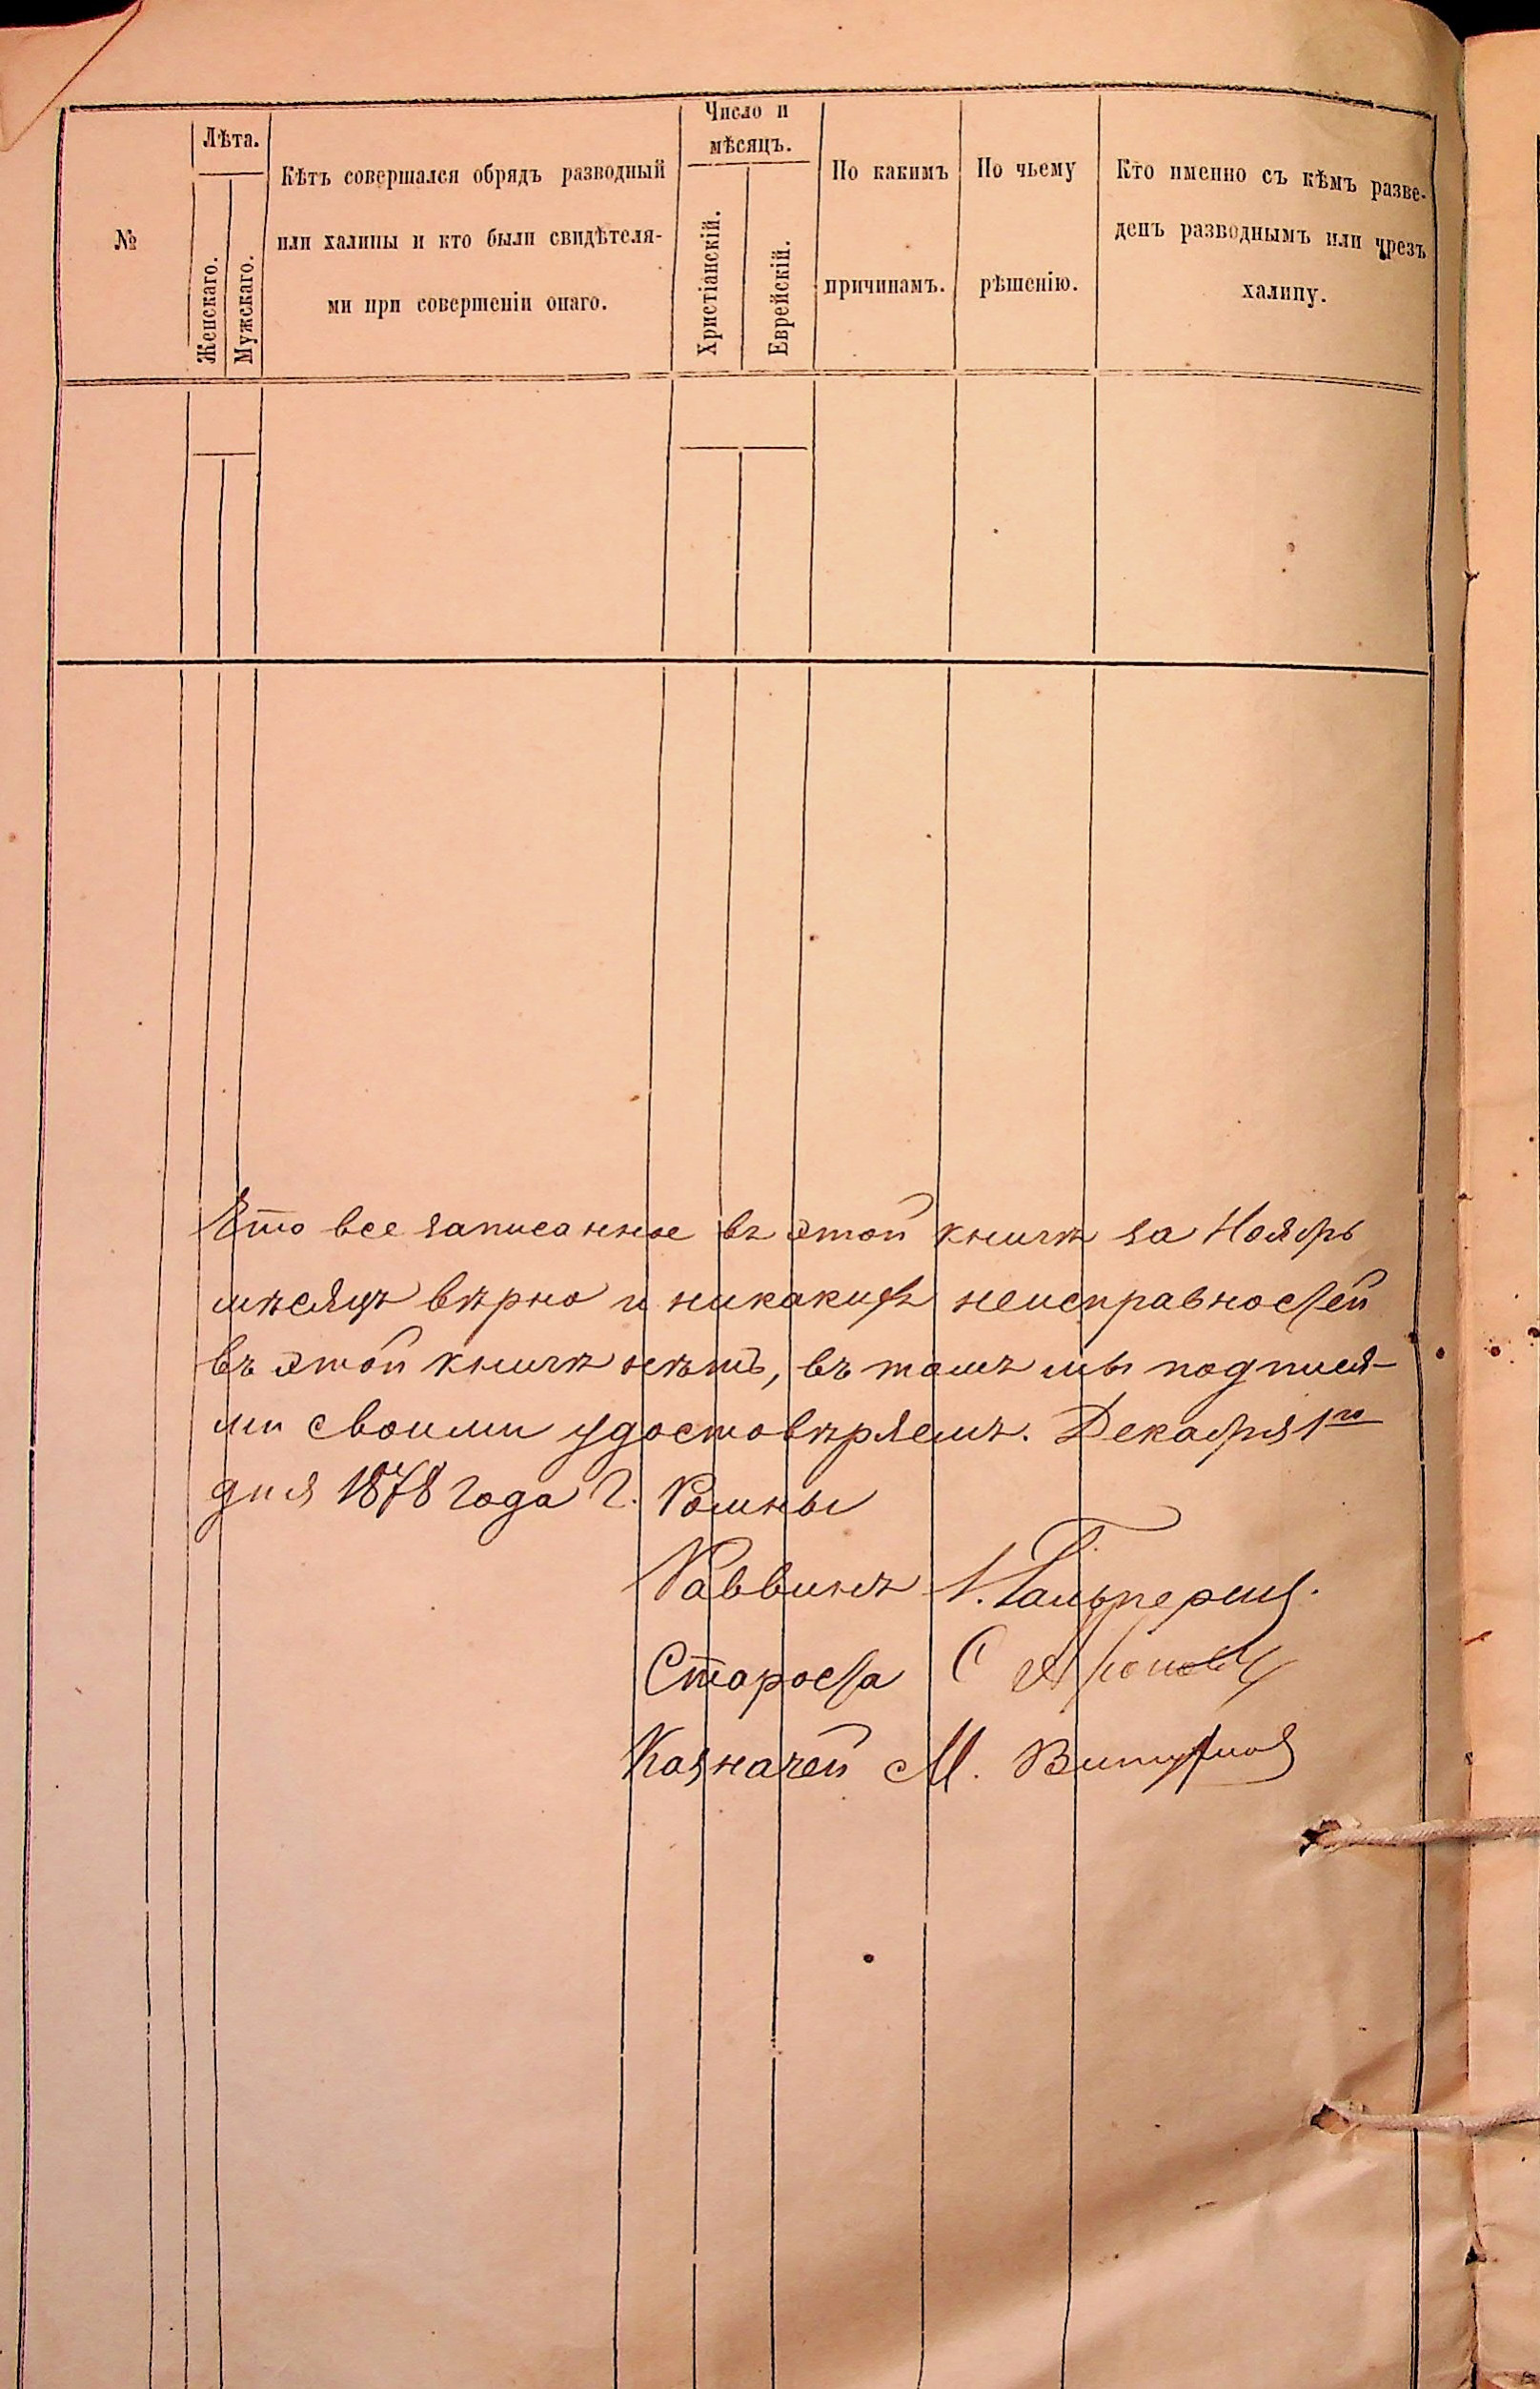 №
Лѣта.
Женскаго.
Мужскаго.
Кѣмъ совершался обрядъ разводный
или халицы и кто были свидѣтеля-
ми при совершеніи онаго.
Число и
мѣсяцъ.
Христіанскій.
Еврейскій.
По какимъ
причинамъ.
По чьему
рѣшенію.
Кто именно съ кѣмъ разве-
денъ разводнымъ или чрезъ
халицу.
Что все записанное въ этой книгѣ за Ноябрь
мѣсяцъ вѣрно и никакихъ неисправностей
въ этой книгѣ нѣтъ, въ томъ мы подпися-
ми своими удостовѣряемъ. Декабря 1го
дня 1878 года г. Ромны
Раввинъ Гальперинъ.
Староста С
Казначей М.